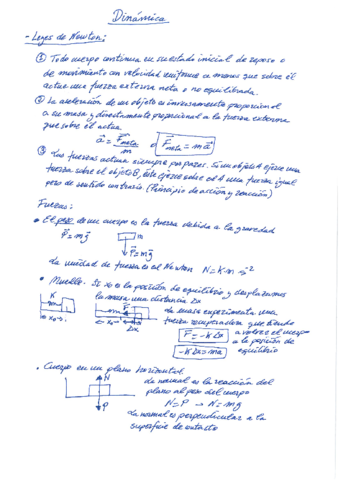 Dinámica
- Leyes de Newton:
① Todo cuerpo continua en su estado inicial de reposo o
de movimiento con velocidad uniforme a menos que sobre él
actue una fuerza externa neta o no equilibrada.
② La aceleración de un objeto es inversamente proporcional
a su masa y directamente proporcional a la fuerza externa
que sobre él actua.
a⃗ = F⃗neta / m o F⃗neta = m a⃗
③ Las fuerzas actúan siempre por pares. Si un objeto A ejerce una
fuerza sobre el objeto B, éste ejerce sobre el A una fuerza igual
pero de sentido contrario. (Principio de acción y reacción)
Fuerzas:
• El peso de un cuerpo es la fuerza debida a la gravedad
P⃗ = m g⃗
m
P⃗ = m g⃗
La unidad de fuerza es el Newton N = K·m s⁻²
• Muelle. Si x₀ es la posición de equilibrio y desplazamos
la masa una distancia Δx
K
m
x₀
La masa experimenta una
fuerza recuperadora que tiende
a volver el cuerpo
a la posición de
equilibrio
m
x₀
Δx
F = -K Δx
-K Δx = ma
• Cuerpo en un plano horizontal
N
P
La normal es la reacción del
plano al peso del cuerpo
N = P → N = mg
La normal es perpendicular a la
superficie de contacto